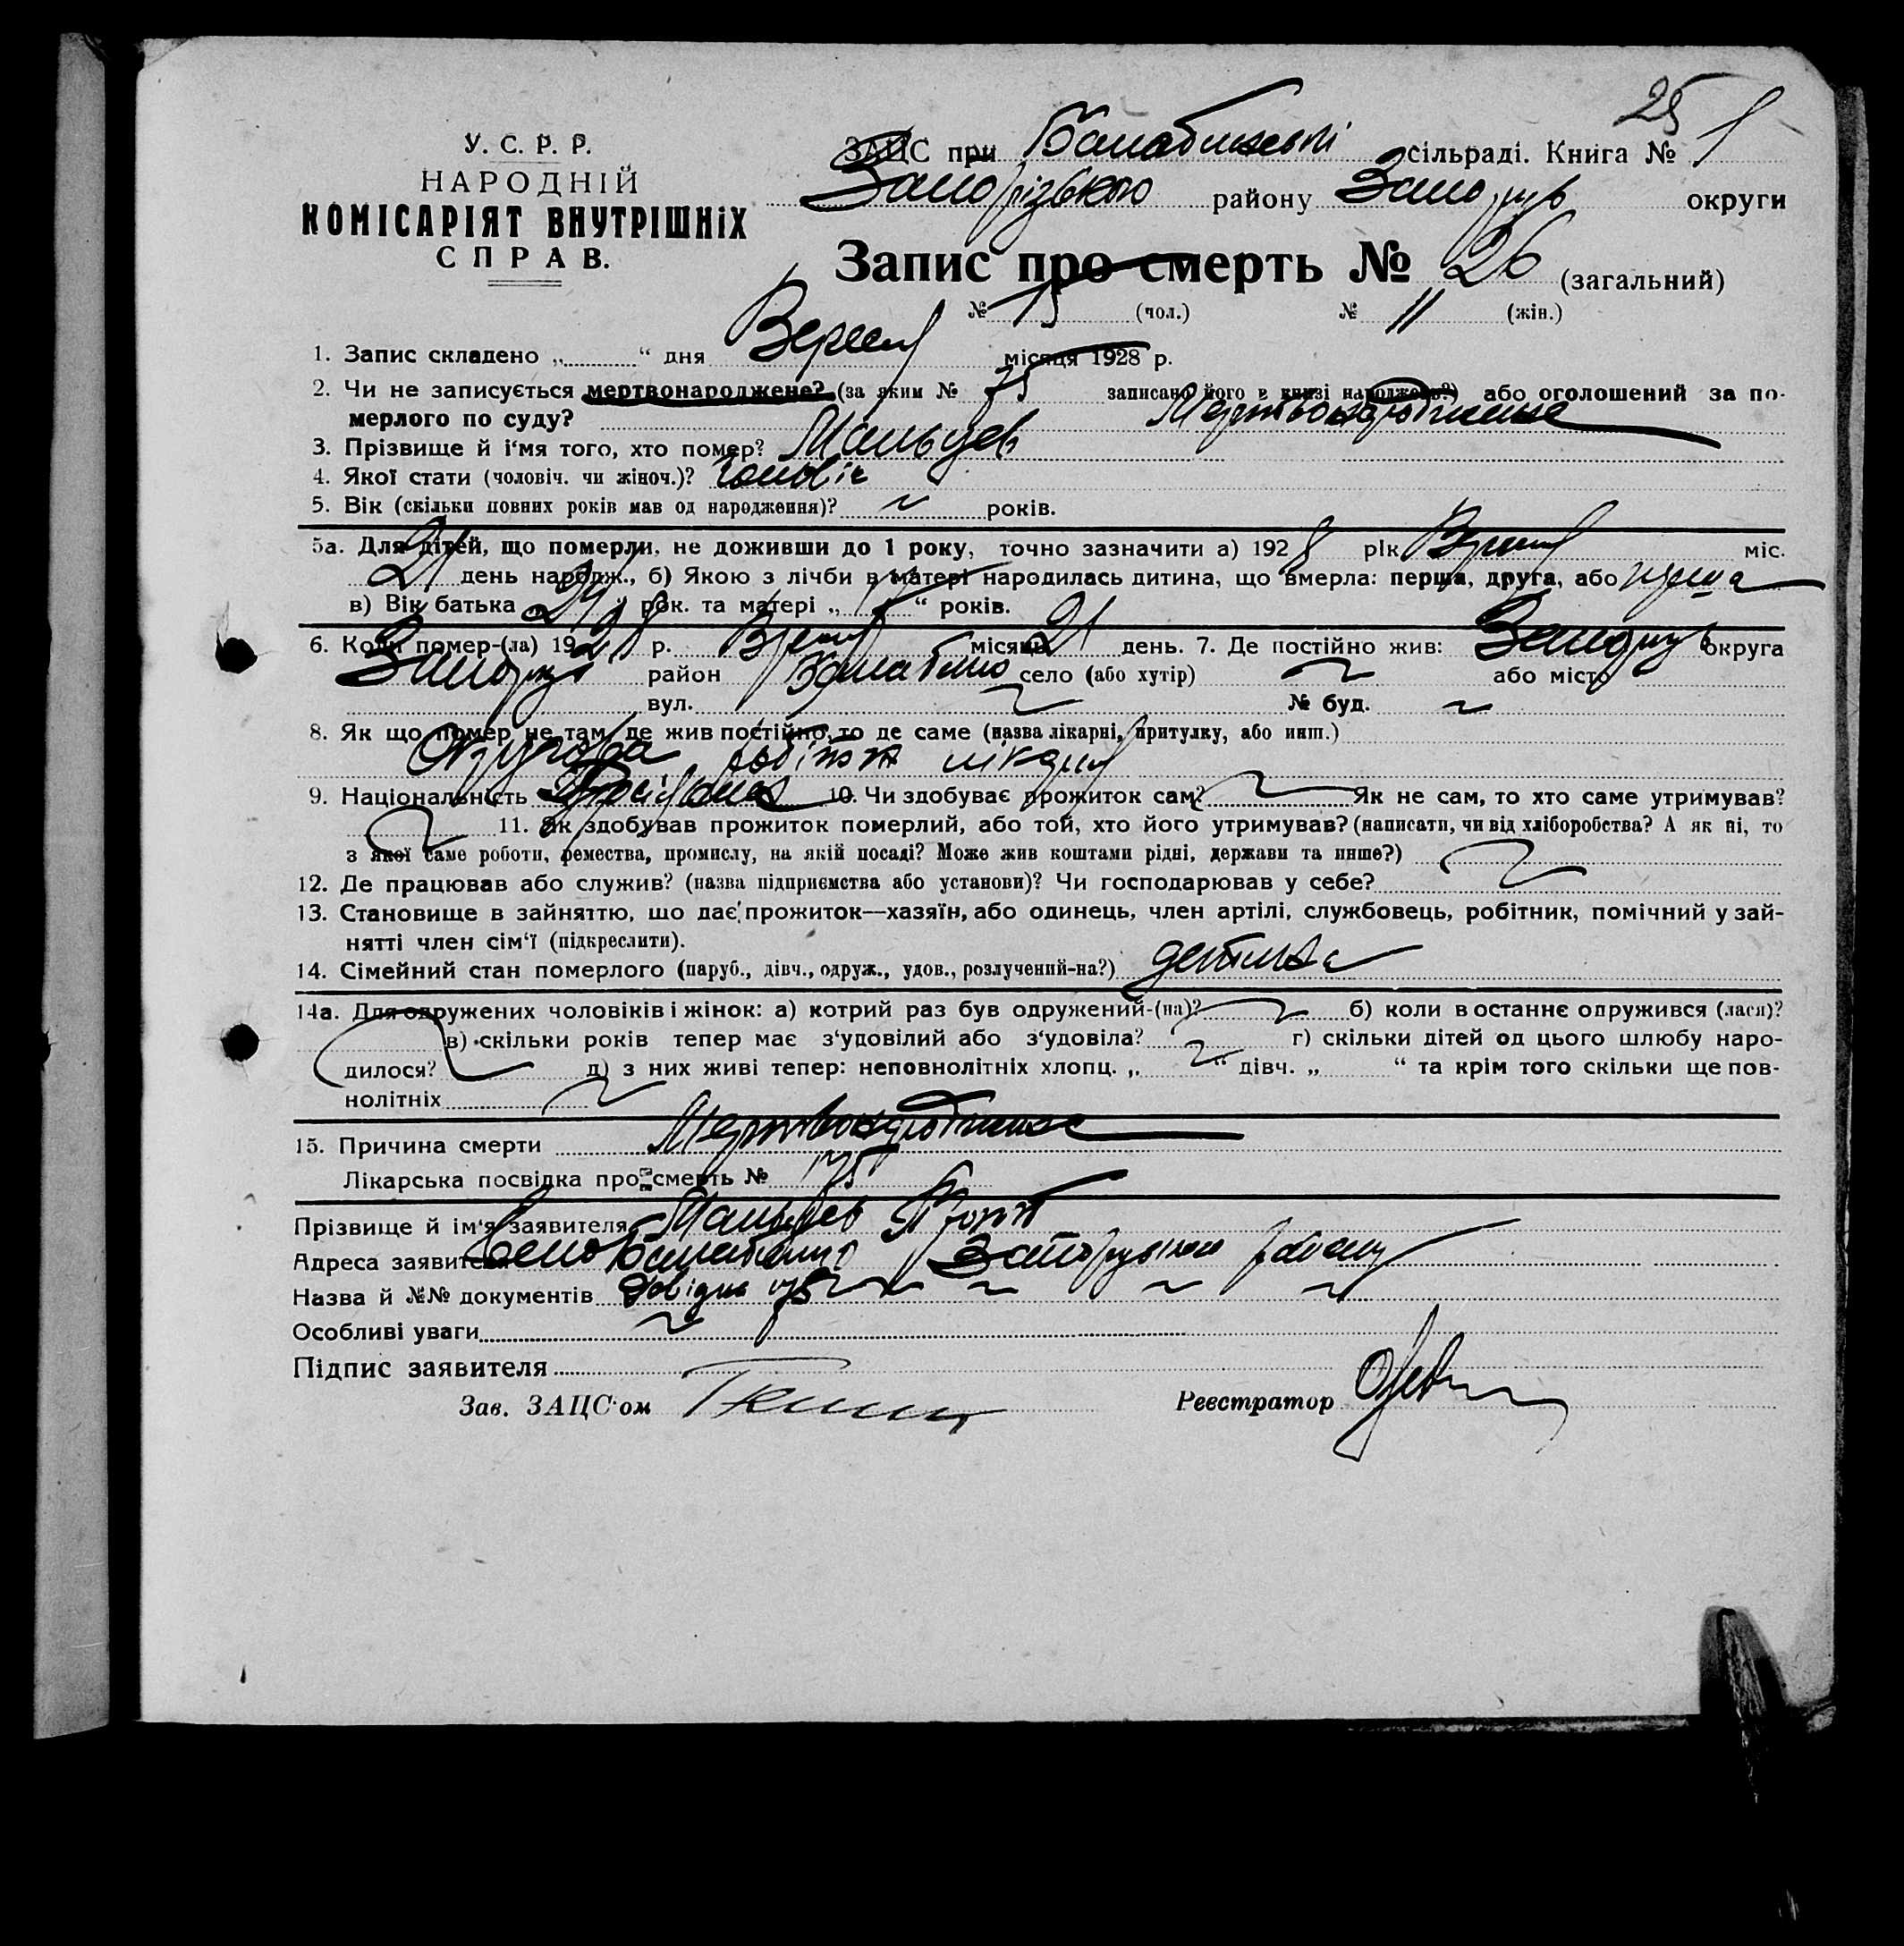 25
У. С. Р. Р.
НАРОДНІЙ
КОМІСАРІЯТ ВНУТРІШНІХ
СПРАВ.
ЗАЦС при Балабинській сільраді. Книга № 1
Запорізького району Запоріз округи
Запис про смерть № 26 (загальний)
№ 15 (чол.) № 11 (жін.)
1. Запис складено „ “ дня Вересня місяця 1928 р.
2. Чи не записується мертвонароджене? (за яким № 75 записано його в книзі народжень?) або оголошений за по-
мерлого по суду? Мертвонароджене
3. Прізвище й і‘мя того, хто помер? Мальцев
4. Якої стати (чоловіч. чи жіноч.)? Чоловіч
5. Вік (скільки повних років мав од народження)? ~ років.
5а. Для дітей, що померли, не доживши до 1 року, точно зазначити а) 1928 рік Вересня міс.
21 день народж., б) Якою з лічби в матері народилась дитина, що вмерла: перша, друга, або перша
в) Вік батька „ “ рок. та матері „ “ років.
6. Коли помер-(ла) 1928 р. Вересня місяць 21 день. 7. Де постійно жив: Запоріз округа
Запоріз район Балабино село (або хутір) ~ або місто
вул. ~ № буд. ~
8. Як що помер не там, де жив постійно, то де саме (назва лікарні, притулку, або инш.)
Окружова робітня лікарня
9. Національність 10. Чи здобуває прожиток сам? ~ Як не сам, то хто саме утримував?
~ 11. Як здобував прожиток померлий, або той, хто його утримував? (написати, чи від хліборобства? А як ні, то
з якої саме роботи, ремества, промислу, на якій посаді? Може жив коштами рідні, держави та инше?) ~
12. Де працював або служив? (назва підприємства або установи)? Чи господарював у себе? ~
13. Становище в зайняттю, що дає прожиток—хазяїн, або одинець, член артілі, службовець, робітник, помічний у зай-
нятті член сім‘ї (підкреслити).
14. Сімейний стан померлого (паруб., дівч., одруж., удов., розлучений-на?) дитина
14а. Для одружених чоловіків і жінок: а) котрий раз був одружений-(на)? ~ б) коли в останнє одружився (лася)?
в) скільки років тепер має з‘удовілий або з‘удовіла? ~ г) скільки дітей од цього шлюбу наро-
дилося? д) з них живі тепер: неповнолітніх хлопц. „ “ дівч. „ “ та крім того скільки ще пов-
нолітніх ~
15. Причина смерти Мертвонароджене
Лікарська посвідка про смерть № 175
Прізвище й ім‘я заявителя Мальцев
Адреса заявителя Село Балабино Запорізького району
Назва й №№ документів Довідка 175 ~ ~ ~ ~
Особливі уваги ~
Підпис заявителя
Зав. ЗАЦС‘ом Реєстратор